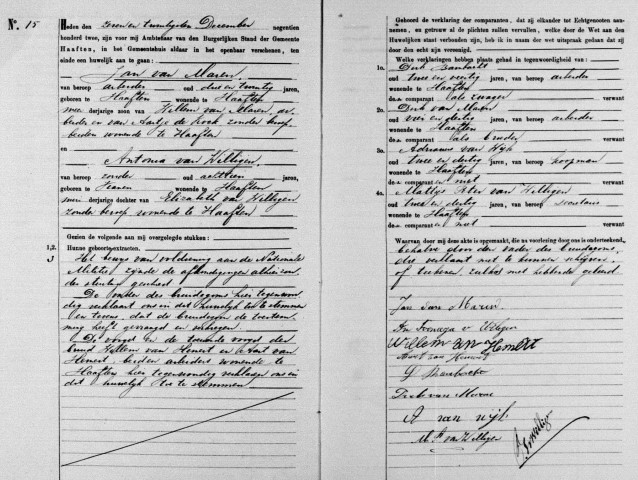 No. 15
Heden den Zeven en twintigsten December negentien
honderd twee, zijn voor mij Ambtenaar van den Burgerlijken Stand der Gemeente
Haaften, in het Gemeentehuis aldaar in het openbaar verschenen, ten
einde een huwelijk aan te gaan:
Jan van Maren
van beroep arbeider oud drie en twintig jaren,
geboren te Haaften wonende te Haaften
meerderjarige zoon van Willem van Maren, ar-
beider en van Aartje de Kock zonder beroep
beiden wonende te Haaften
en
Antonia van Willigen
van beroep zonder oud achttien jaren,
geboren te wonende te Haaften
minderjarige dochter van Elizabeth van Willigen
zonder beroep wonende te Haaften
Gezien de volgende aan mij overgelegde stukken:
1,2. Hunne geboorte-extracten.
3 Het bewys van voldoening aan de Nationale
Militie zijnde de afkondigingen alhier zon-
der stuiting geschied
De vader des bruidegoms hier tegenwoor-
dig verklaart ons in dit huwelyk toe te stemmen
en tevens, dat de bruidegom de toestem-
ming heeft gevraagd en verkregen
De voogd en de toeziende voogd der
bruid Willem van Hemert en Aart van
Hemert, beiden arbeiders wonende te
Haaften hier tegenwoordig verklaren ons in
dit huwelyk toe te stemmen
Gehoord de verklaring der comparanten, dat zij elkander tot Echtgenooten aan-
nemen, en getrouw al de plichten zullen vervullen, welke door de Wet aan den
Huwelijken staat verbonden zijn, heb ik in naam der wet uitspraak gedaan dat zij
door den echt zijn vereenigd.
Welke verklaringen hebben plaats gehad in tegenwoordigheid van:
1o. Dirk
oud twee en veertig jaren, van beroep arbeider
wonende te Haaften
den comparant als zwager
2o. Dirk van Maren
oud vier en dertig jaren, van beroep arbeider
wonende te Haaften
den comparant als broeder
3o. Adrianus van Wyk
oud twee en dertig jaren, van beroep koopman
wonende te Haaften
den comparanten niet
4o. Mattys Peter van Willigen
oud twee en dertig jaren, van beroep secretaris
wonende te Haaften
den comparanten niet
Waarvan door mij deze akte is opgemaakt, die na voorlezing door ons is onderteekend,
behalve door den vader des bruidegoms,
die verklaart niet te kunnen schrijven
of teekenen zulks niet hebbende geleerd
Jan van Maren
v Willigen
Willem van Hemert
Aart van Hemert
D
Dirk van Maren
A van Wijk
M. P. van Willigen